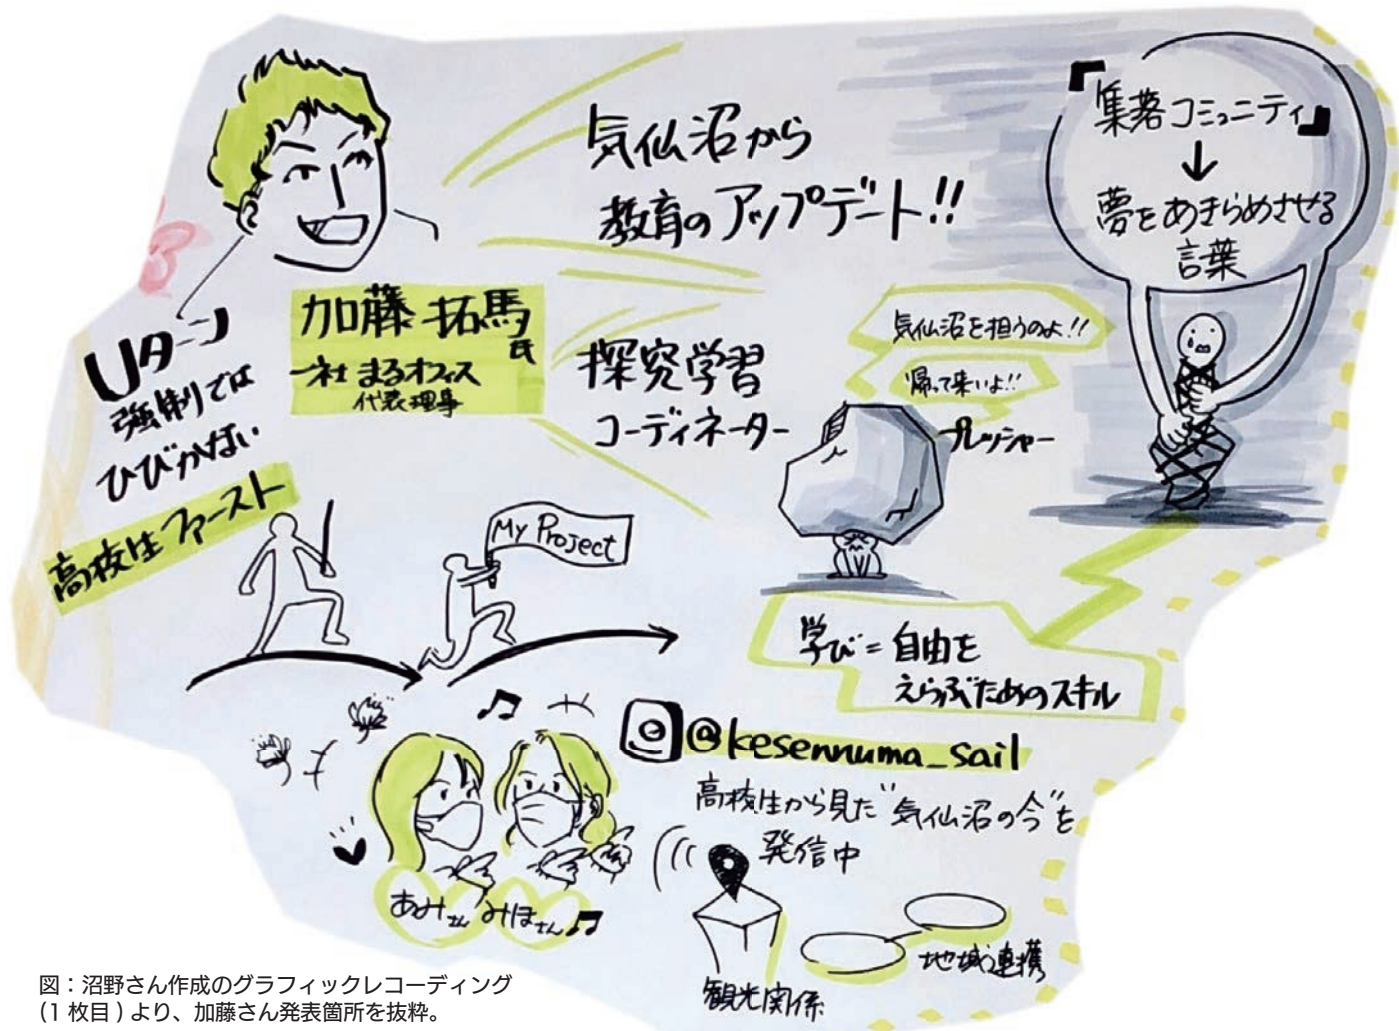 気仙沼から
教育のアップデート!!
『集落コミュニティ』
↓
夢をあきらめさせる
言葉
加藤 拓馬氏
一社 まるオフィス
代表理事
Uターン
強制では
ひびかない
高校生ファースト
探究学習
コーディネーター
気仙沼を担うのよ!!
帰って来いよ!!
プレッシャー
My Project
学び=自由を
えらぶためのスキル
@kesennuma_sail
高校生から見た"気仙沼の今"を
発信中
あみさん
みほさん
観光関係
地域連携
図：沼野さん作成のグラフィックレコーディング
(1 枚目 ) より、加藤さん発表箇所を抜粋。